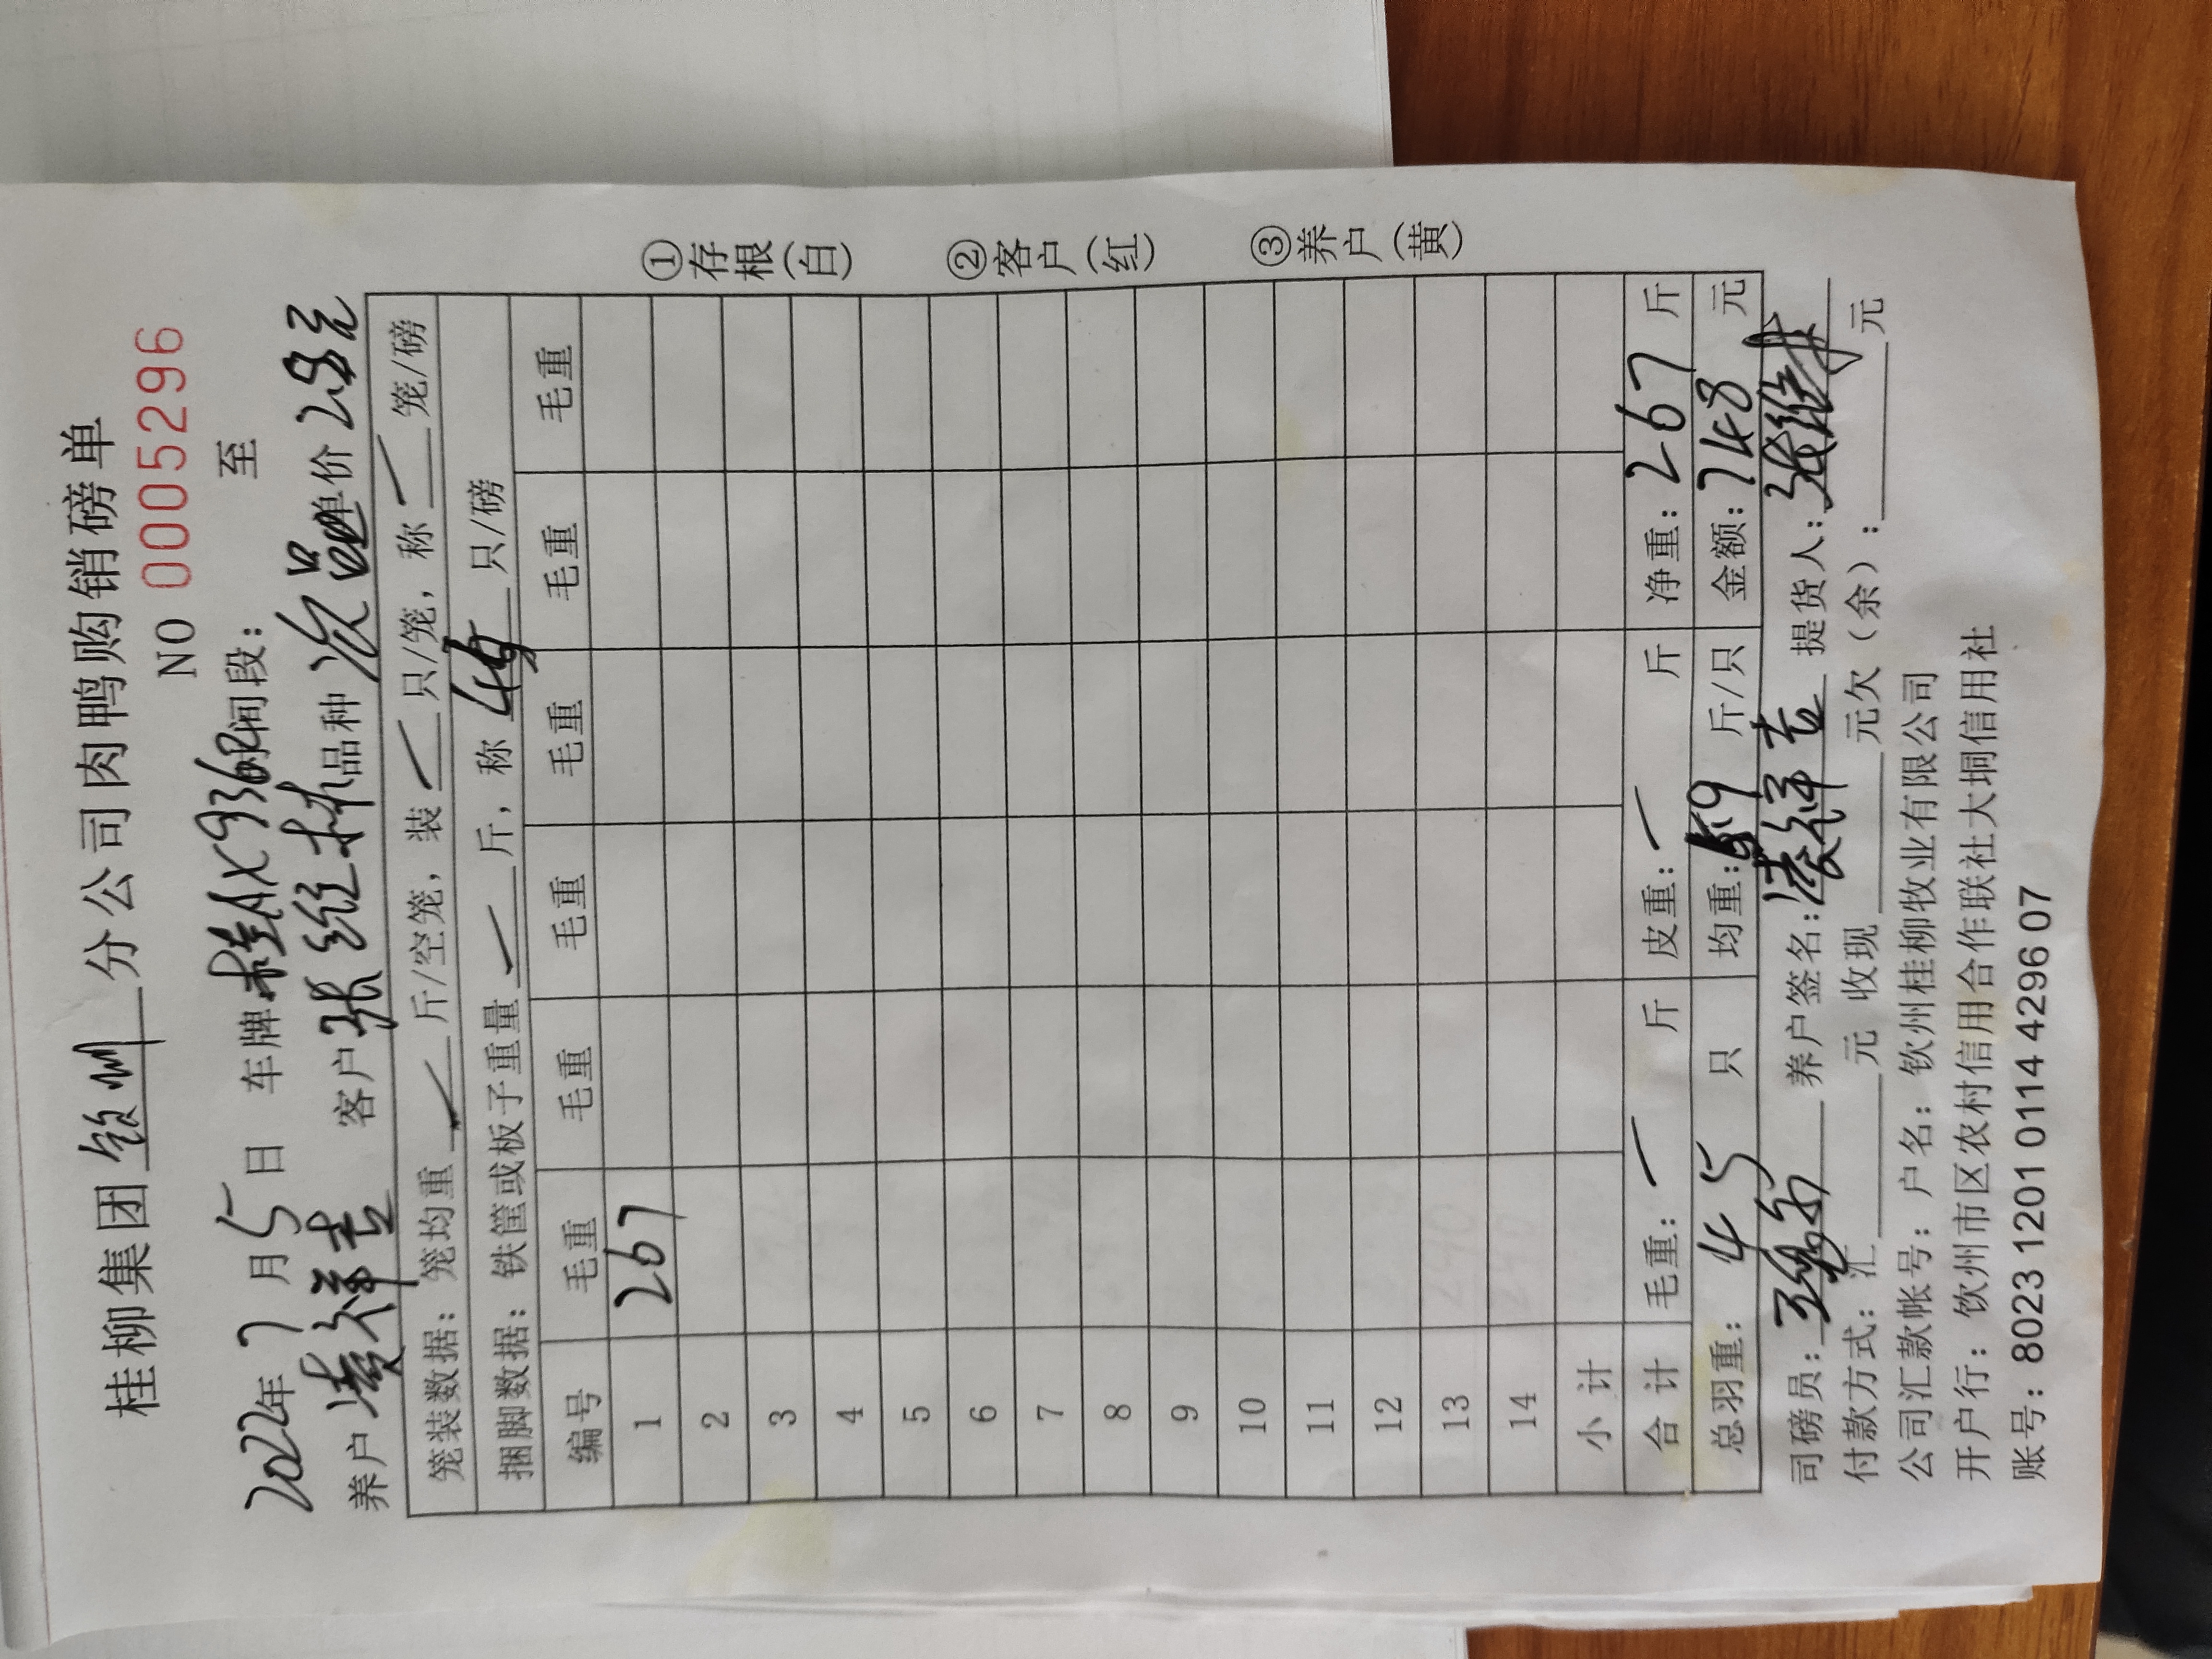 桂柳集团 钦州 分公司肉鸭购销磅单
NO 0005296
2022年7月5日 车牌:桂AX9368 时间段: 至
养户 凌祥吉 客户 张维林 品种 次品 单价 2.8元
笼装数据: 笼均重 斤/空笼, 装 只/笼, 称 笼/磅
捆脚数据: 铁筐或板子重量 斤, 称 45 只/磅
编号 毛重 毛重 毛重 毛重 毛重 毛重
1 267
2
3
4
5
6
7
8
9
10
11
12
13
14
小 计
合 计 毛重: 斤 皮重: 斤 净重: 267 斤
总羽重: 45 只 均重: 5.9 斤/只 金额: 748 元
司磅员: 养户签名: 凌祥吉 提货人: 张维林
付款方式: 汇 元 收现 元欠(余): 元
公司汇款帐号: 户名: 钦州桂柳牧业有限公司
开户行: 钦州市区农村信用合作联社大垌信用社
账号: 8023 1201 0114 4296 07
①存根(白) ②客户(红) ③养户(黄)